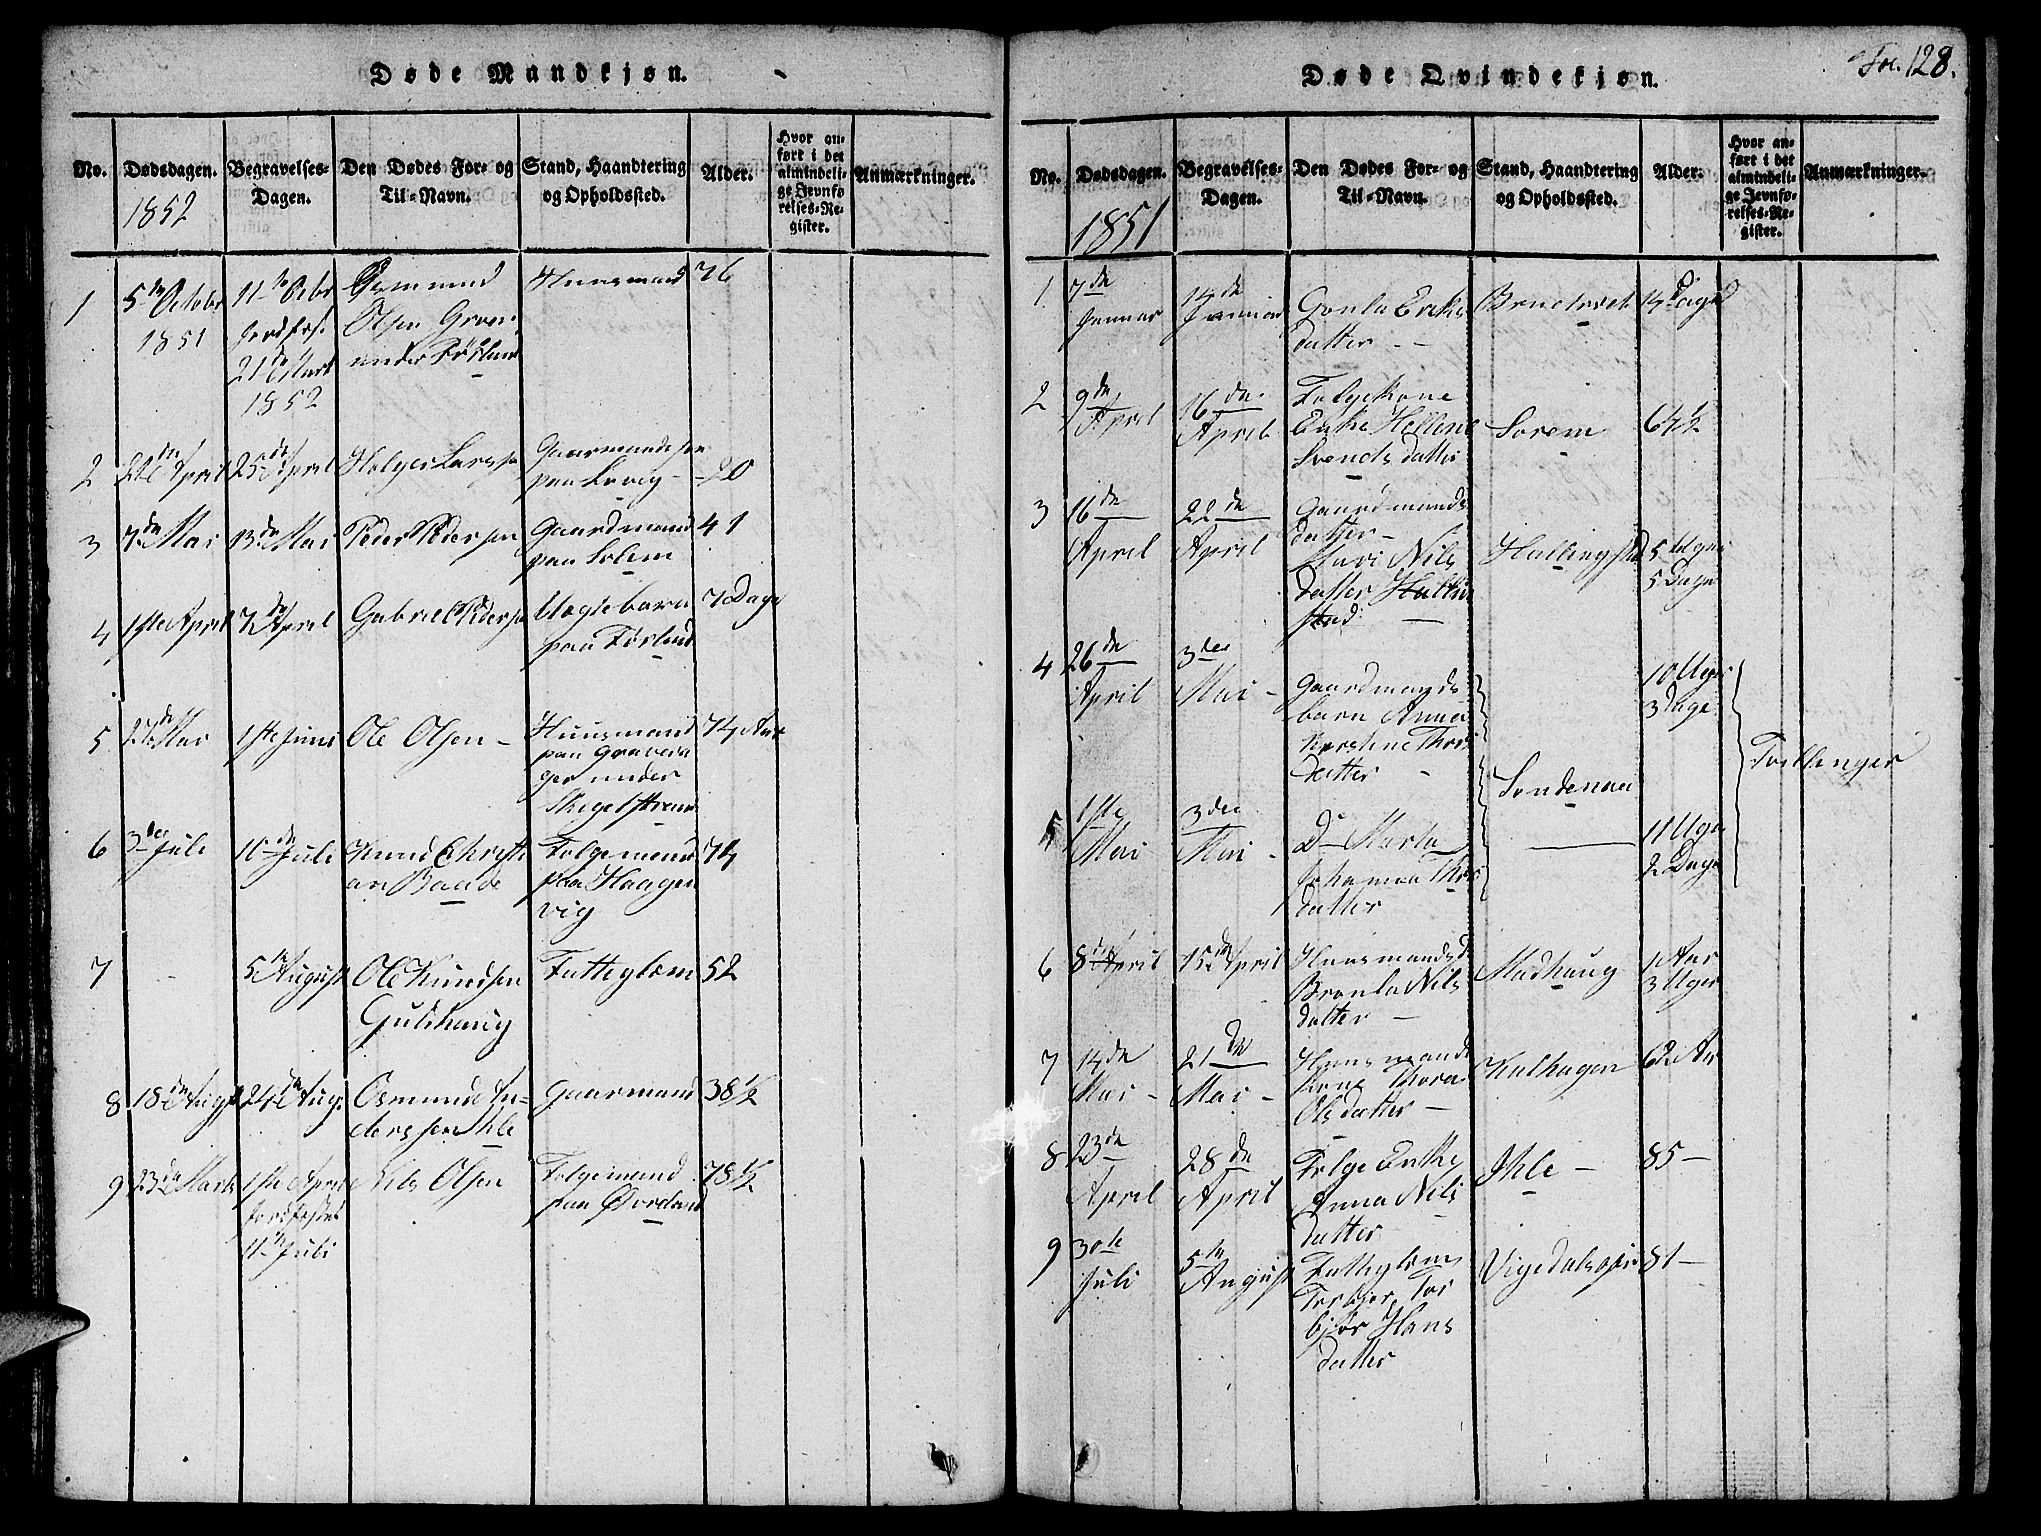 Døde Mandkjøn.
No.
Dødsdagen.
1852
Begravelses-
Dagen.
Den Dødes For- og
Til-Navn.
Stand, Haandtering
og Opholdssted.
Alder.
Hvor an-
ført i det
almindeli-
ge Jevnfø-
relses-Re-
gister.
Anmærkninger.
1
5te October
1851
11te Octbr
jordfæs.
21de Mart
1852
Osmund
Olsen
under Førland
Huusmand
76
2
22de April
25de April
Holger Larsen
Gaarmandssøn
paa
20
3
7de Mai
13de Mai
Peder Pedersen
Gaardmand
paa Solem
41
4
1ste April
7de April
Gabriel Pedersen
Uægtebarn
paa Førland
7 Dage
5
27de Mai
1ste Juni
Ole Olsen -
Huusmand
paa
under
74 Aar
6
3die Juli
10de Juli
Knud Christi
an Baade
Folgemand
paa Haagen
vig
74
7
5te August
Ole Knudsen
Guldhaug
Fattiglem
52
8
18de Augst
24de Aug.
Osmund An-
dersen Ihle
Gaarmand
38½
9
23de Marts
1ste April
jordfæstet
11te Juli
Nils Olsen
Folgemand
paa
78½
Fol. 128.
Døde Qvindekjøn.
No.
Dødsdagen.
1851
Begravelses-
Dagen.
Den Dødes For- og
Til-Navn.
Stand, Haandtering
og Opholdssted.
Alder.
Hvor an-
ført i det
almindeli-
ge Jevnfø-
relses-Re-
gister.
Anmærkninger.
1
7de
Januar
14de
Januar
Gonla Eriks
datter - -
14 Dage
2
9de
April
16de
April
Folgekone
Enke Hellene
Svends datter
Sorem
64½
3
16de
April
22de
April
Gaardmands
datter -
Mari Nils
datter
stad -
Hallingstad
5 Uger
5 Dage
4
26de
April
3die
Mai -
Gaardmands
barn Anna
Kirstine Thors
datter -
Søndenaa
10 Uger
3 Dage
Tvillinger
5
1ste
Mai
3die
Mai -
Do Marta
Johanna Thors
datter
11 Uger
2 Dage
6
8de April
15de April
Huusmandsd
Bronla Nils
datter -
Madhaug
1 Aar
3 Uger
7
14de
Mai -
21de
Mai -
Huusmands
kone Thora
Olsdatter -
Kalhagen
62 Ar
8
23de
April
28de
April
Folge Enke
Anna Nils
datter
Ihle -
85 -
9
30te
Juli
5te
August
Fattiglem
Tor
bjør Hans
datter
81 -